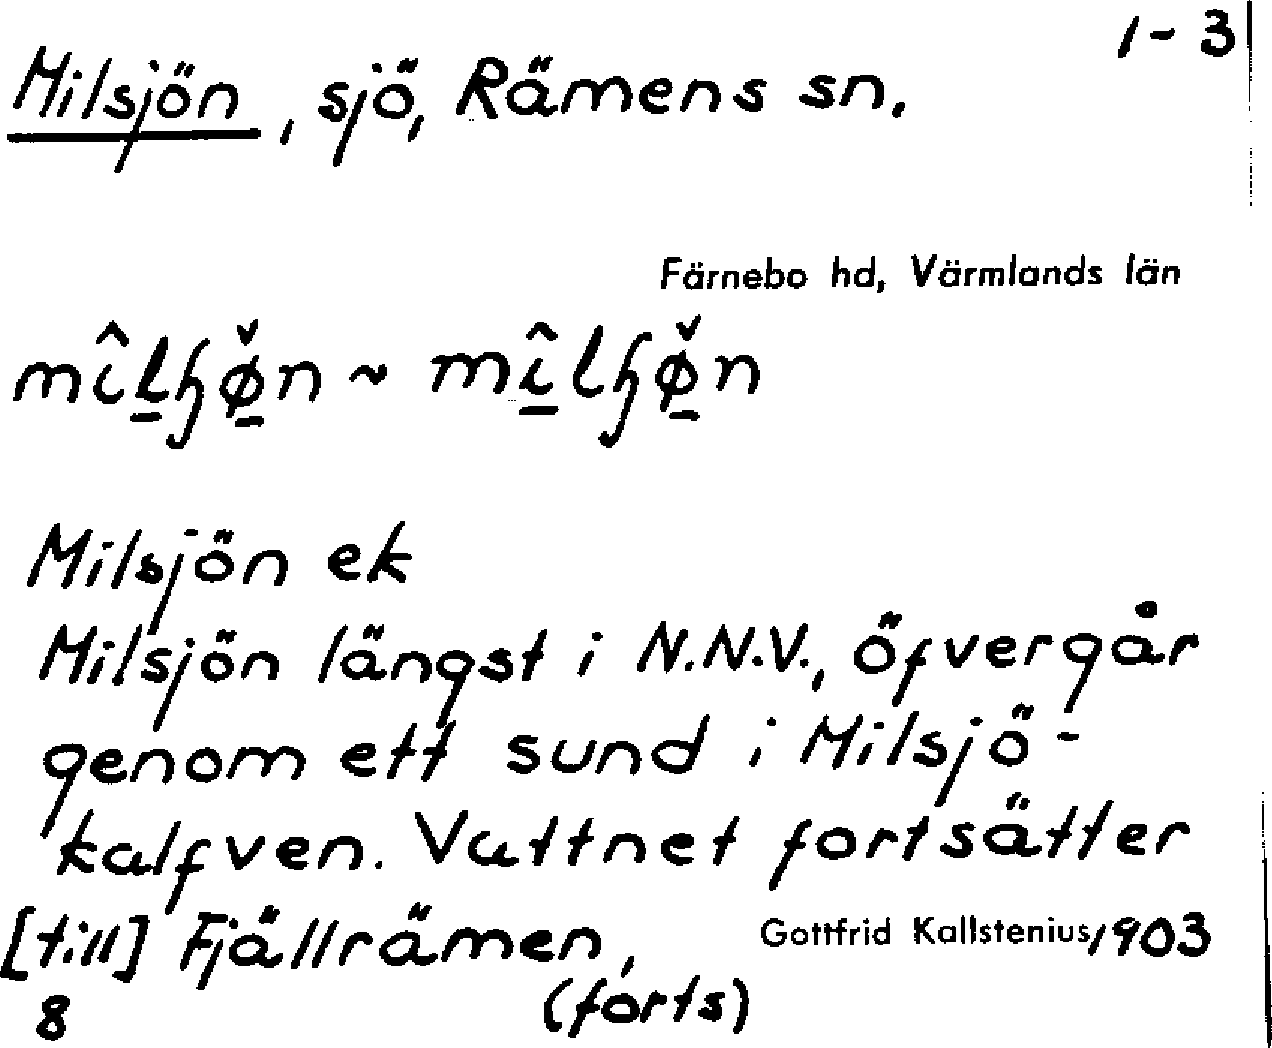 1-3
Milsjön, sjö, Rämens sn.
Färnebo hd, Värmlands län
Milsjön ek
Milsjön längst i N.N.V., öfvergår
genom ett sund i Milsjö-
kalfven. Vattnet fortsätter
[till] Fjällrämen,
Gottfrid Kallstenius, 1903
8 (forts)